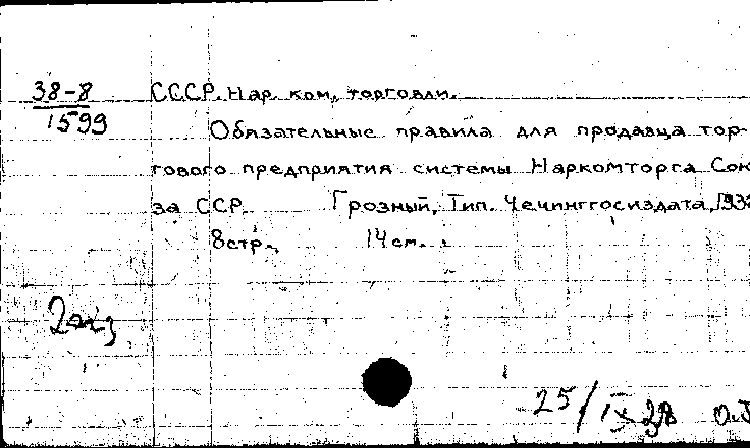 38-8
1599
СССР. Нар. ком. торговли.
Обязательные правила для продавца тор-
гового предприятия системы Наркомторга Сою
за ССР. Грозный, Тип. Чечинггосиздата, 193
8стр., 14см.
2экз
25/IX 38